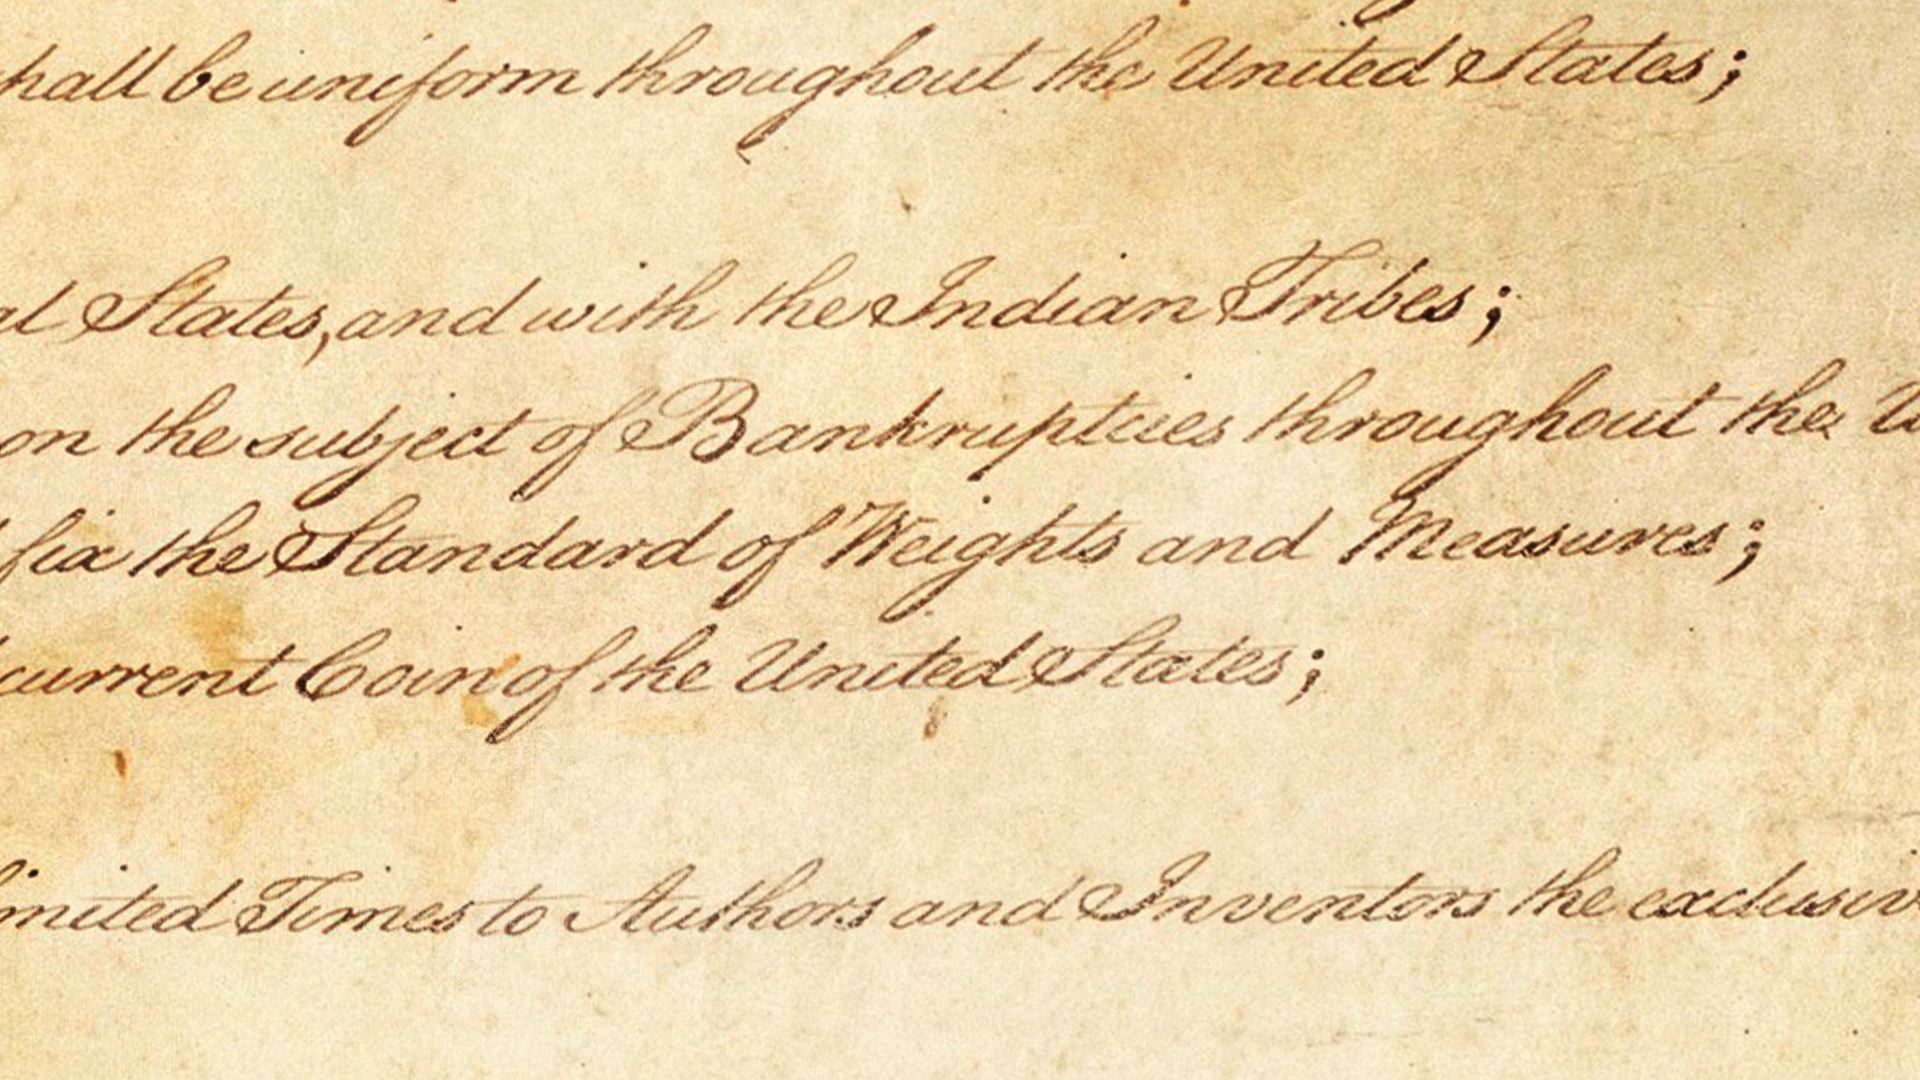 hall be uniform throughout the United States;
al States, and with the Indian Tribes;
on the subject of Bankruptcies throughout the U
fix the Standard of Weights and Measures;
current Coin of the United States;
imited Times to Authors and Inventors the exclusiv